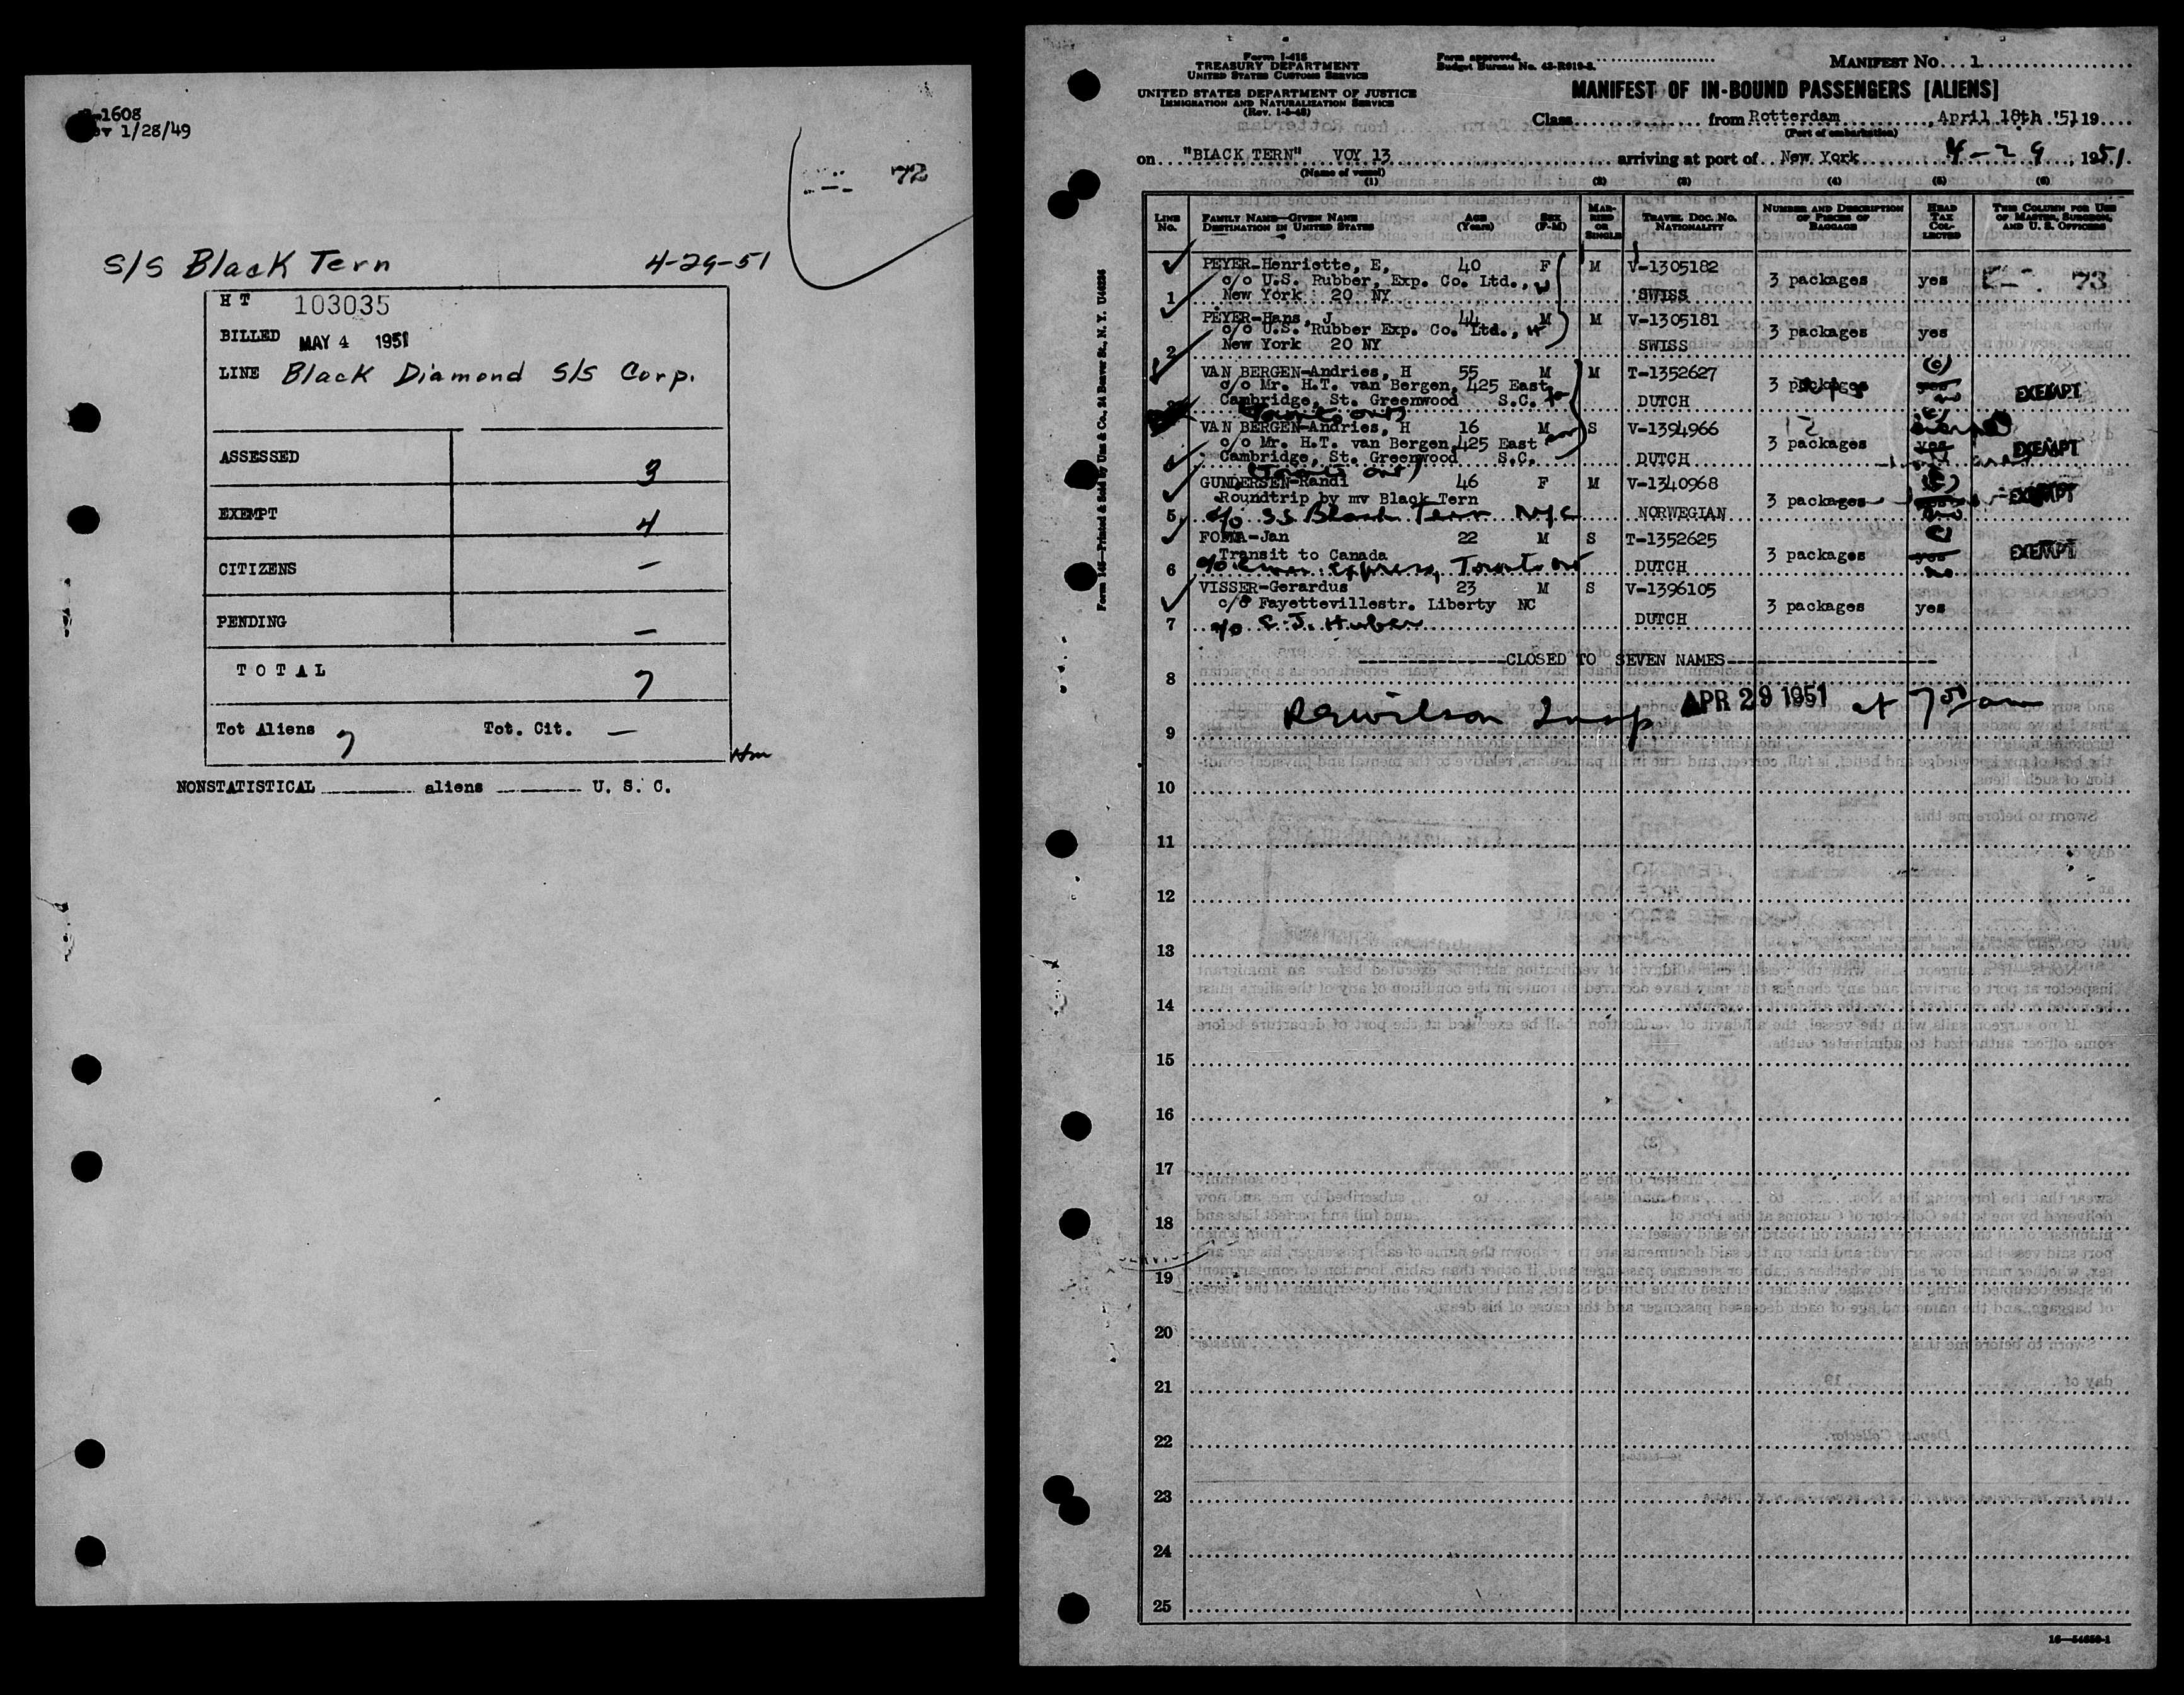 -1608
ev 1/28/49
72
S/S Black Tern 4-29-51
HT 103035
BILLED MAY 4 1951
LINE Black Diamond S/S Corp.
ASSESSED 3
EXEMPT 4
CITIZENS —
PENDING —
TOTAL 7
Tot Aliens 7 Tot. Cit. —
Hm
NONSTATISTICAL aliens U. S. C.
Form I-415
TREASURY DEPARTMENT
UNITED STATES CUSTOMS SERVICE
UNITED STATES DEPARTMENT OF JUSTICE
IMMIGRATION AND NATURALIZATION SERVICE
(Rev. 1-5-48)
Form approved.
Budget Bureau No. 43-R019-2.
MANIFEST No. 1
MANIFEST OF IN-BOUND PASSENGERS (ALIENS)
Class from Rotterdam, April 18th '51 19
(Port of embarkation)
on "BLACK TERN" VOY 13 arriving at port of New York 4-29, 1951
(Name of vessel)
(1) (2) (3) (4) (5) (6)
LINE No. FAMILY NAME—GIVEN NAME DESTINATION IN UNITED STATES AGE (Years) SEX (F-M) MARRIED OR SINGLE TRAVEL DOC. NO. NATIONALITY NUMBER AND DESCRIPTION OF PIECES OF BAGGAGE HEAD TAX COLLECTED THIS COLUMN FOR USE OF MASTER, SURGEON, AND U. S. OFFICERS
PEYER-Henriette, E, 40 F M V-1305182
c/o U.S. Rubber, Exp. Co. Ltd., W 3 packages yes 73
1 New York 20 NY SWISS
PEYER-Hans, J 44 M M V-1305181
c/o U.S. Rubber Exp. Co. Ltd., H 3 packages yes
2 New York 20 NY SWISS
VAN BERGEN-Andries, H 55 M M T-1352627
c/o Mr. H.T. van Bergen, 425 East 3 packages yes no EXEMPT
3 Cambridge, St. Greenwood S.C. DUTCH
VAN BERGEN-Andries, H 16 M S V-1394966
c/o Mr. H.T. van Bergen, 425 East son 3 packages yes EXEMPT
4 Cambridge, St. Greenwood S.C. DUTCH
GUNDERSEN-Randi 46 F M V-1340968
Roundtrip by mv Black Tern 3 packages EXEMPT
5 c/o SS Black Tern NYC NORWEGIAN
-Jan 22 M S T-1352625
Transit to Canada 3 packages yes no EXEMPT
6 c/o express, Toronto Ont DUTCH
VISSER-Gerardus 23 M S V-1396105
c/o Fayettevillestr. Liberty NC 3 packages yes
7 c/o C. J. Huber DUTCH
CLOSED TO SEVEN NAMES
8
Wilson Insp APR 29 1951 at 7 50/am
9
10
11
12
13
14
15
16
17
18
19
20
21
22
23
24
25
16—54650-1